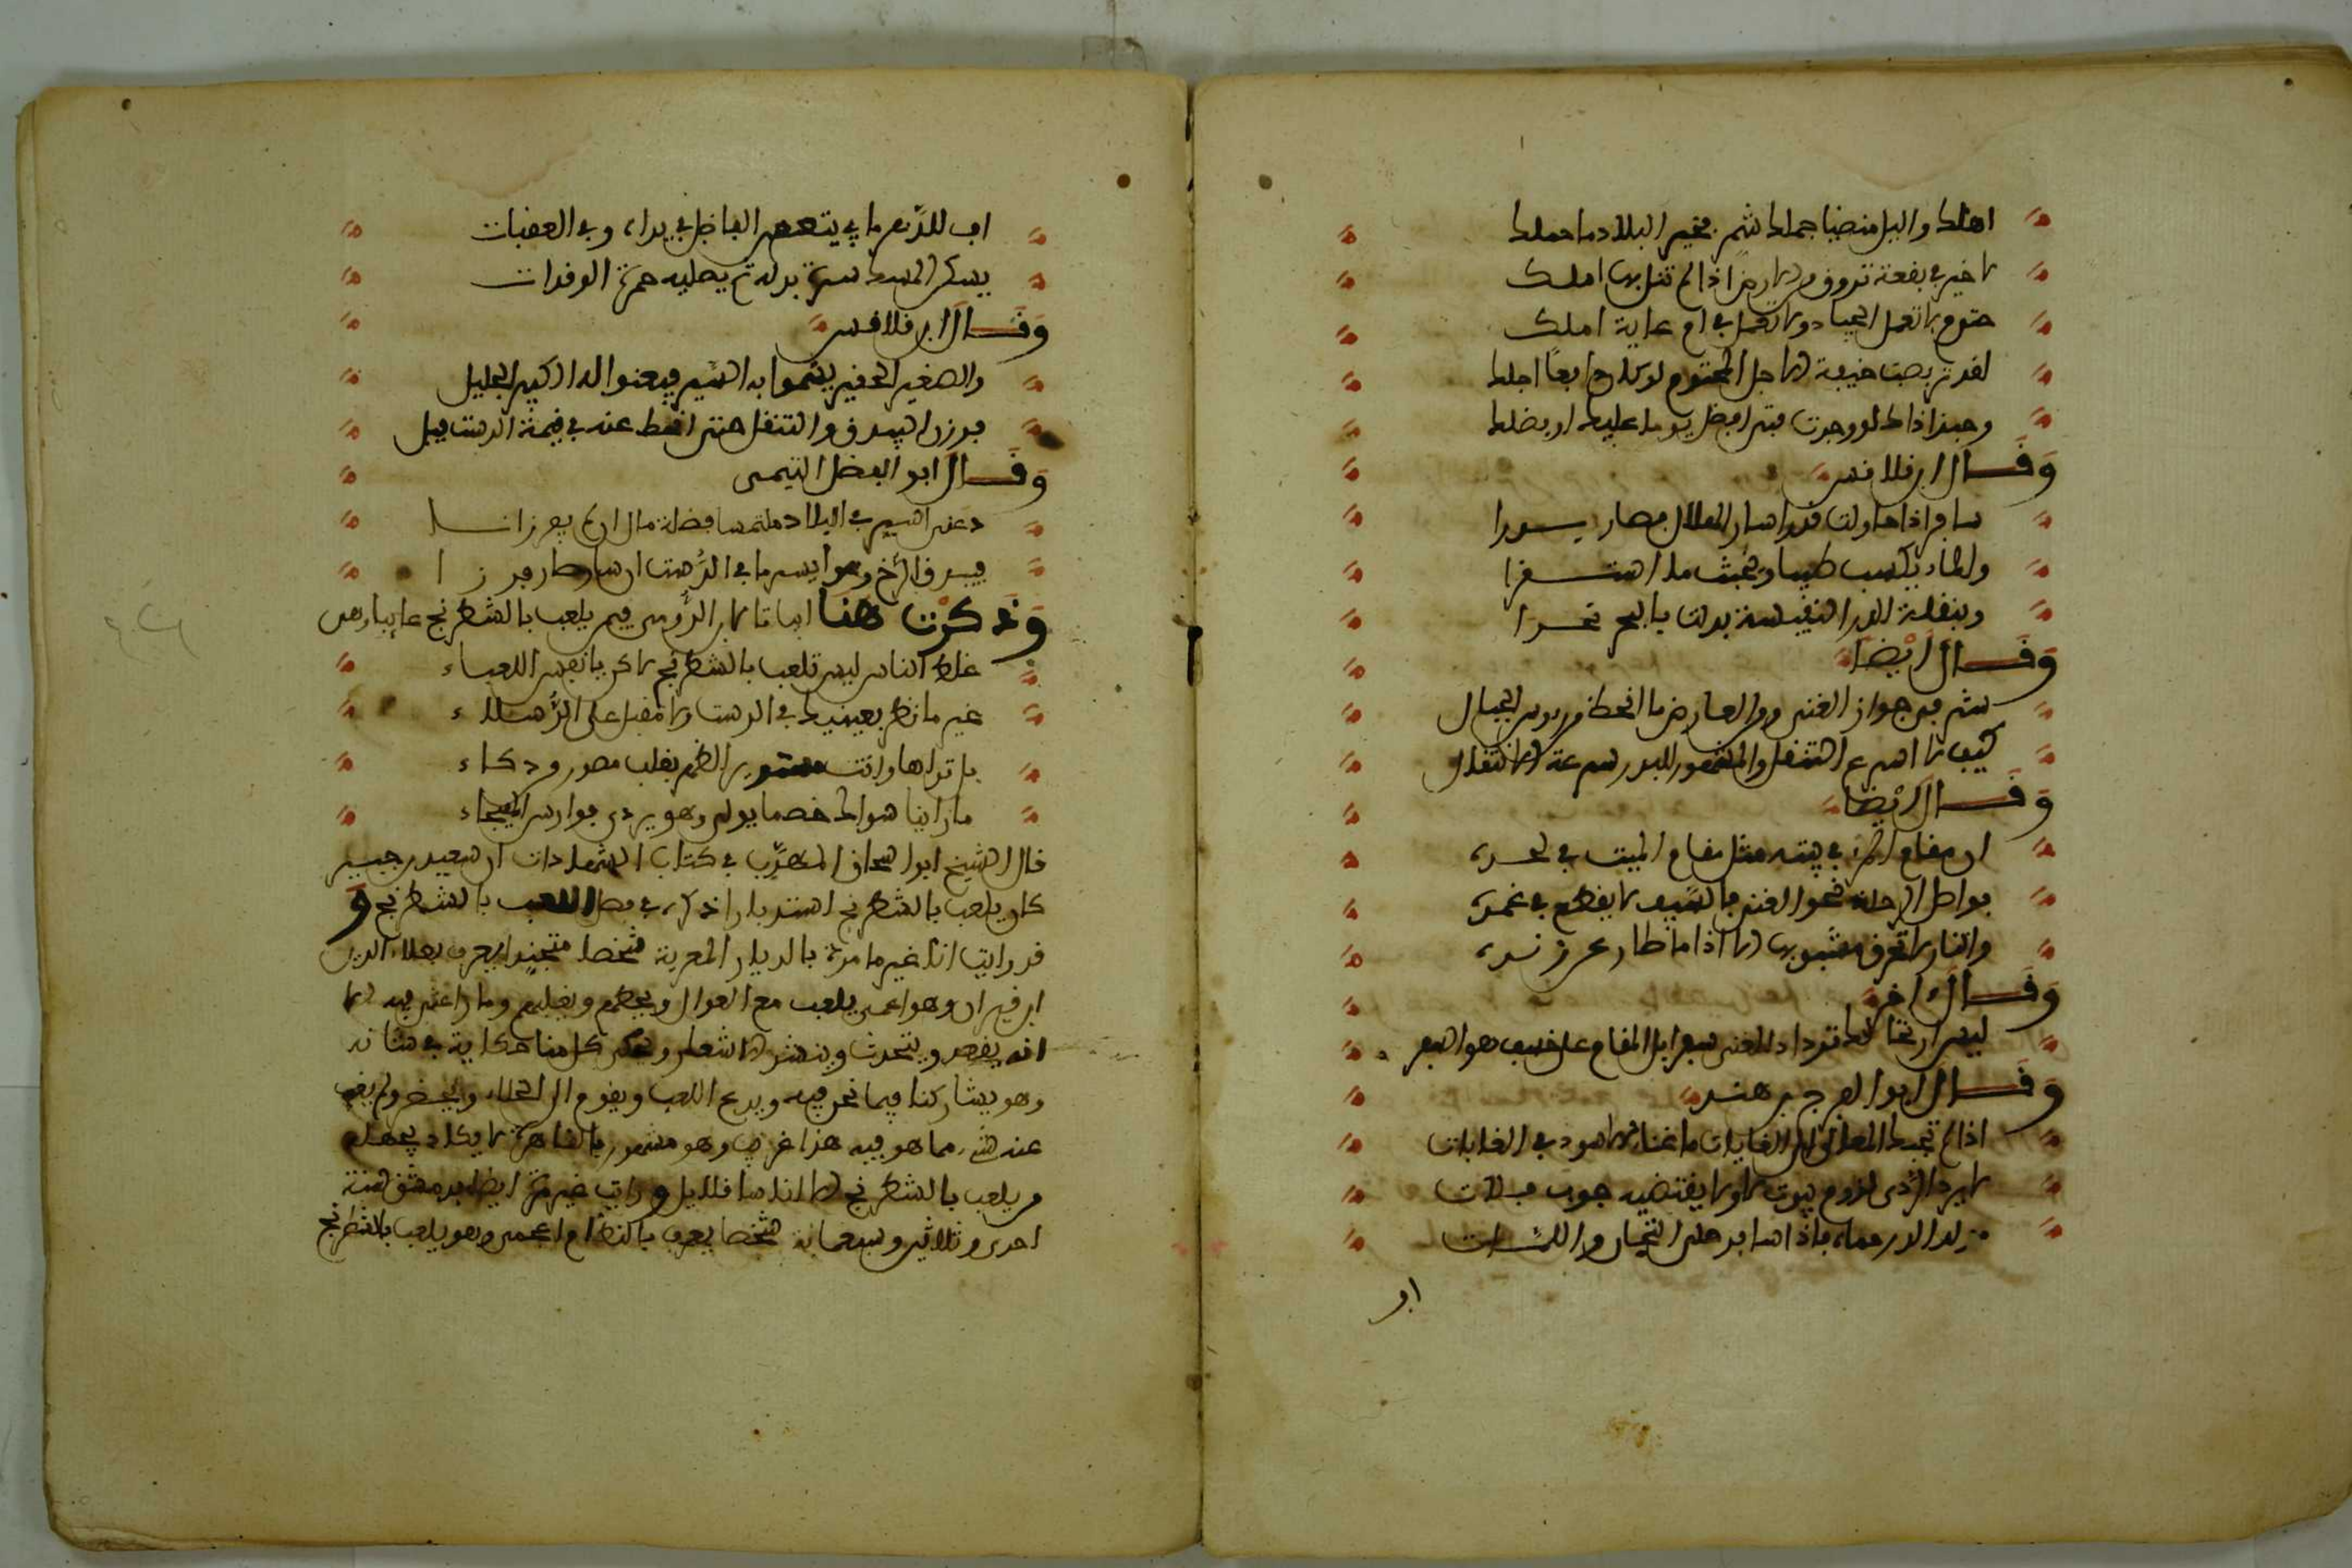 اهلك والليل منضيا جملك شمر فخير البلاد ما حملك
لا خير في بقعة تروق ولا ارض اذا لم تنل بها املك
حتوم لا تعمل الجياد ولا تعمل في ام غاية املك
لقد تربصت خيفة الاجل المحتوم لو كان دافعا اجلك
وحبذا ذاك لو وجدت فتى افضل يوما عليك او فضلك
وقال ابن قلاقس
سافر اذا حاولت قدرا سار الهلال فصار بدرا
والماء يكسب طيبا ويخبث ما استقرا
وبنقلة الدرر النفيسة بدلت بالبحر نحرا
وقال ايضا
شم فرجوا ان الغنى والعارض ما انحط من روس الجبال
كيف لا اسرع التنقل والمشهور للبدر سرعة الانتقال
وقال ايضا
ان مقام المرء في بيته مثل مقام الميت في لحده
فواصل الرحلة نحو الغنى فالسيف لا يقطع في غمده
والنار لا تحرق مشبوبها الا اذا ما طار عن زنده
وقال اخر
ليس ارتحالك تزداد الغنى سفرا بل المقام على خسف هو السفر
وقال ابو الفرج بن هندو
اذا لم تجبك المعالي الى الغايات ما غناء الاسود في الغابات
لا يرد الردى لزوم بيوت لا ولا يقتضيه جوب فلات
مزلد الدر حماه فاذا سافر حلى التيجان واللبات
اب
اب للدهر ما في يتعب الفاضل في بداء وفي العقبات
يسكن المسك سرة بدله ثم يصليه حمرة الوقدات
وقال ابن قلاقس
والصغير الحقير يسموا به السير فيعنوا له الكبير الجليل
فرزن البيدق التنقل حتى انحط عنه في قيمة الدست فيل
وقال ابو الفضل التيمى
دعنى اسير في البلاد ملتمسا فضلة مال ان لم يفر زانا
فبيدق الرخ وهو ايسر ما في الدست ان سار صار فرزانا
وذكرت هنا ابياتا لابن الرومى فيمن يلعب بالشطرنج غائبا وهى
غلط الناس ليس تلعب بالشطرنج لاكن بانفس اللعباء
غير ما ناظر بعينيك في الدست ولا مقبل على الرسلاء
بل تراها وانت مستدبر الظهر بقلب مصور وذكاء
ما راينا سواك خصما يولى وهو يردى فوارس الهيجاء
قال الشيخ ابو اسحاق في المهذب في كتاب الشهادات ان سعيد بن جبير
كان يلعب بالشطرنج استدبارا ذكره في فصل اللعب بالشطرنج و
قد رايت انا غير ما مرة بالديار المصرية شخصا متجندا يعرف بعلاء الدين
ابن قيران وهو اعمى يلعب مع العوال ويحطهم ويغلبهم وما راعنى فيه الا
انه يقعد ويتحدث وينشد الاشعار ويحكى كل منا حكاية في شانه
وهو يشاركنا فيما نحن فيه ويدع اللعب ويقوم الى الخلاء ويحضر ولم يغب
عنه شيء مما هو فيه هذا غريب وهو مشهور بالقاهرة لا يكاد يجهله
من يلعب بالشطرنج الا اناسا قلايل ورايت غير مرة ايضا بدمشق سنة
احدى وثلاثين وسبعماية شخصا يعرف بالنظام العجمى وهو يلعب بالشطرنج